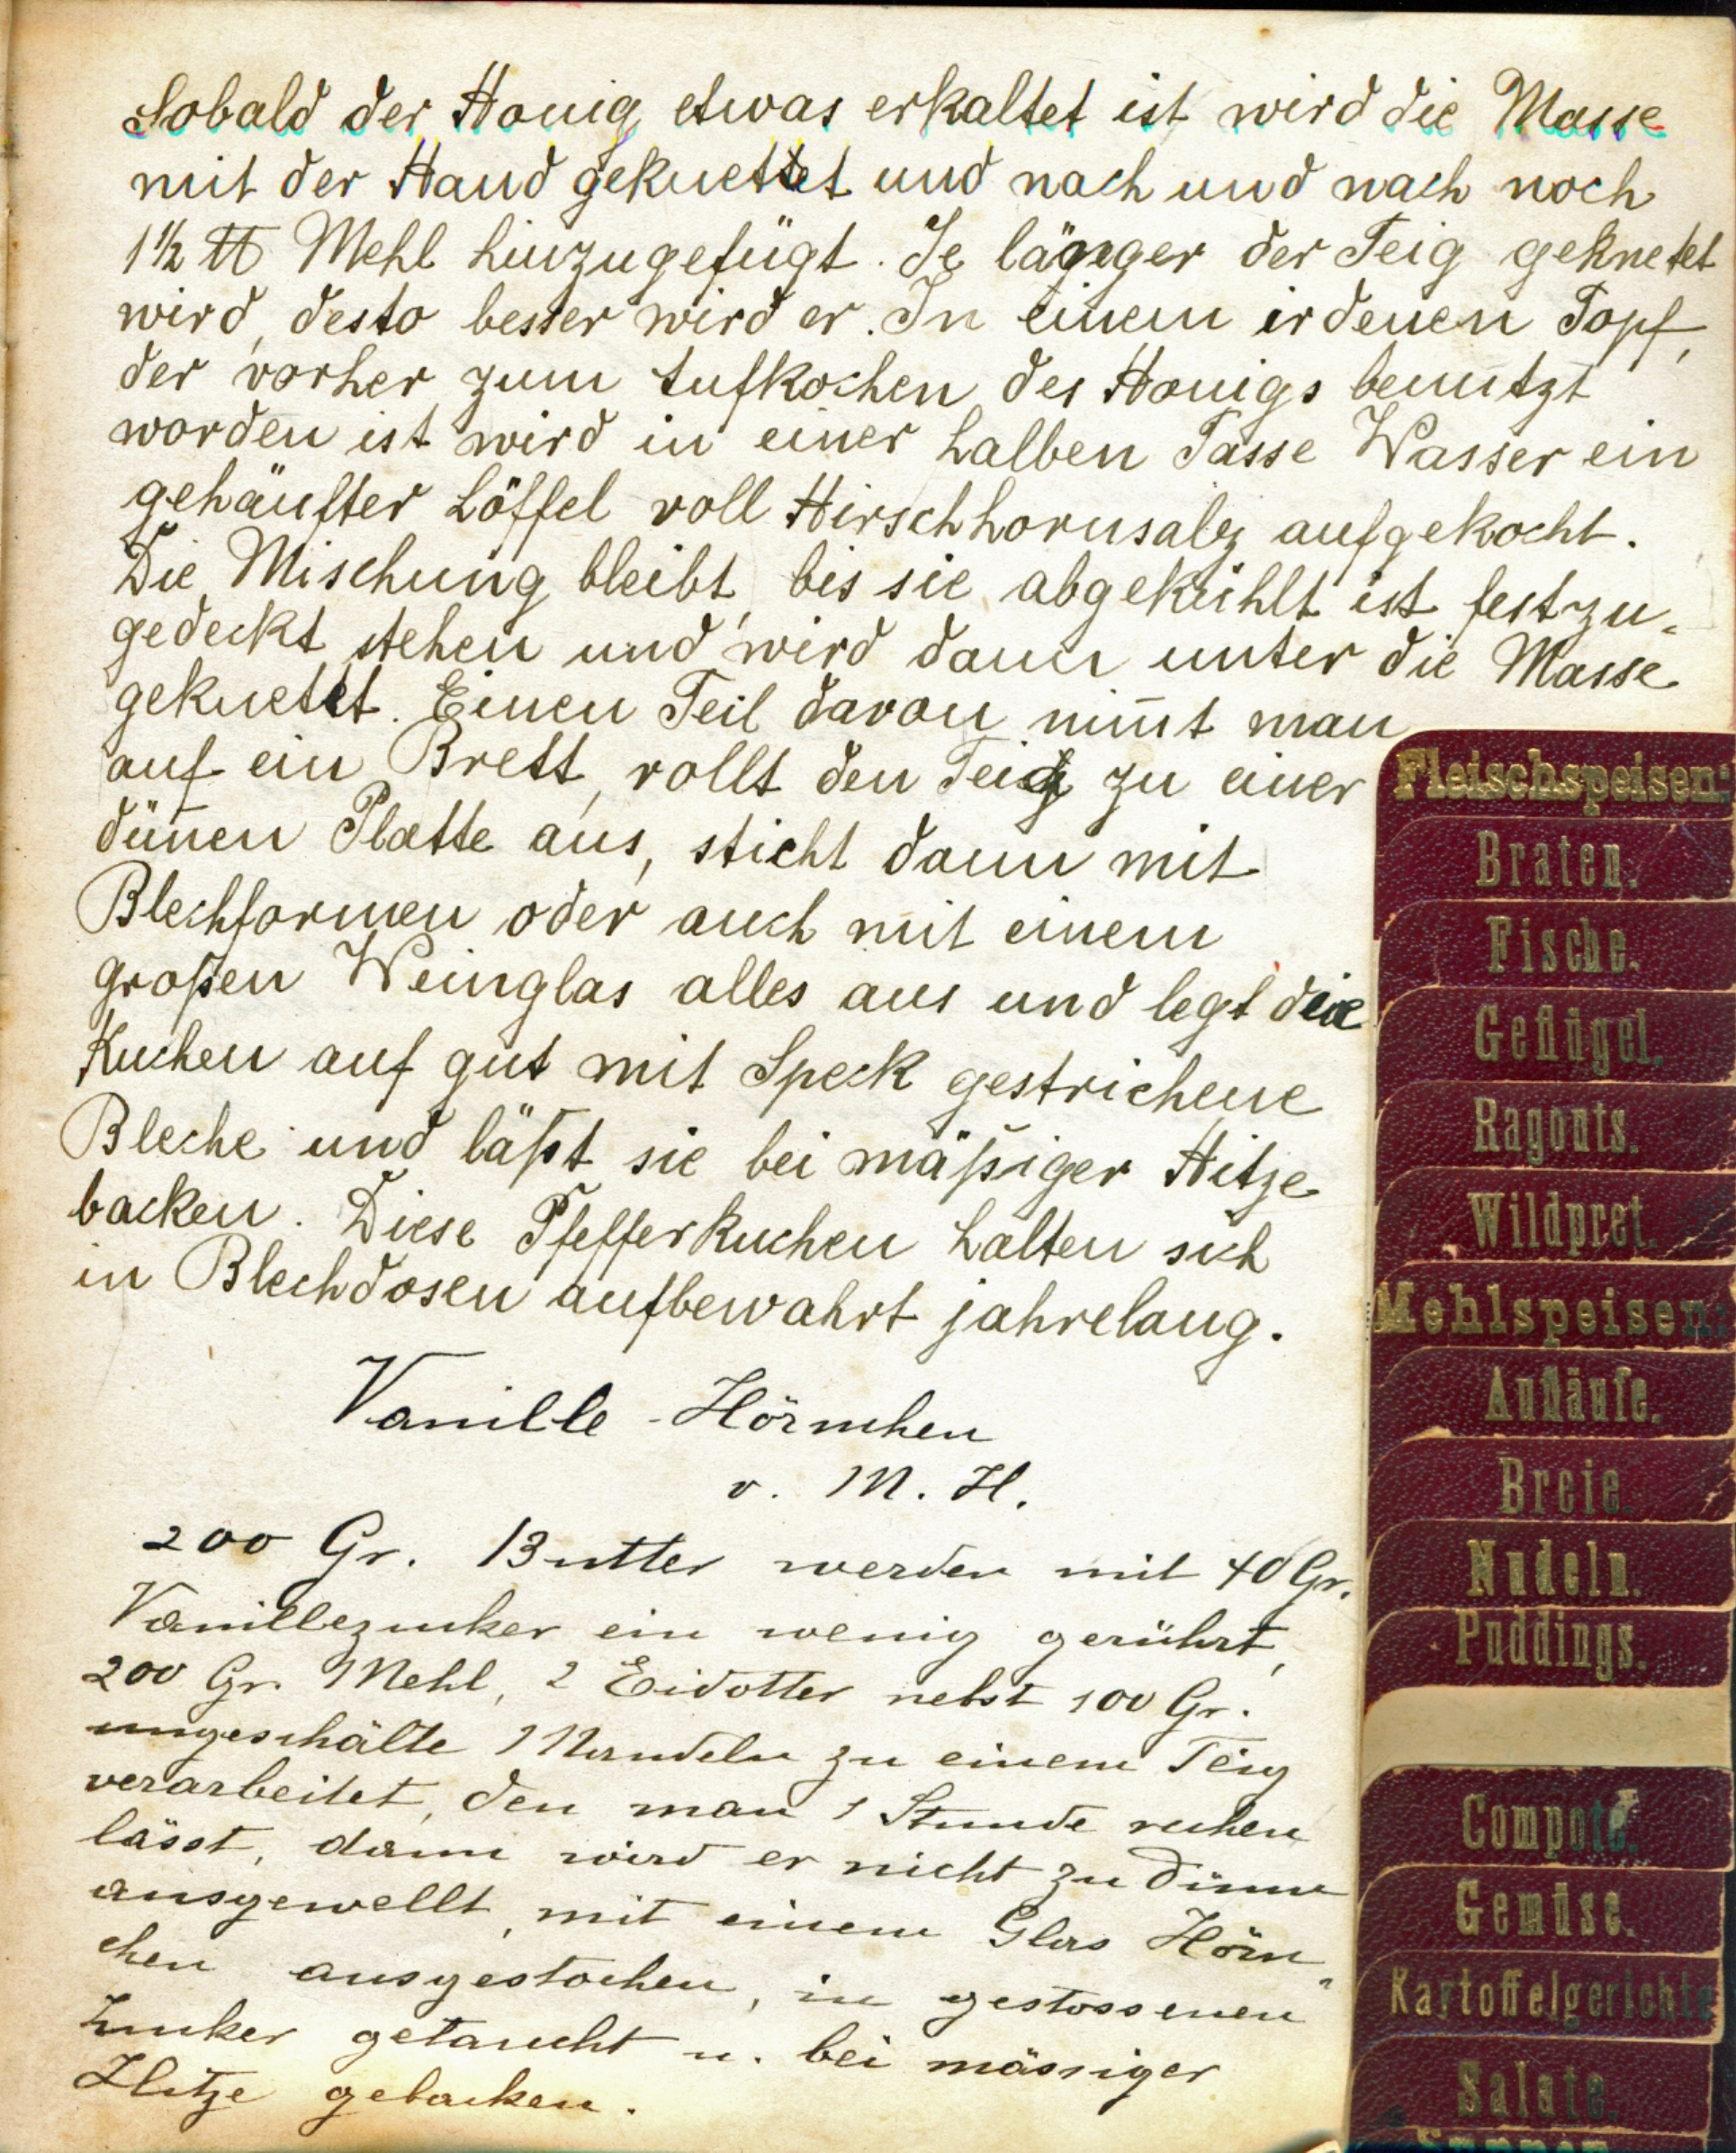 Sobald der Honig etwas erkaltet ist wird die Masse
mit der Hand geknettet und nach und nach noch
1½ ℔ Mehl hinzugefügt. Je länger der Teig geknetet
wird, desto besser wird er. In einem irdenen Topf,
der vorher zum Aufkochen des Honigs benützt
worden ist wird in einer halben Tasse Wasser ein
gehäufter Löffel voll Hirschhornsalz aufgekocht.
Die Mischung bleibt, bis sie abgekühlt ist fest zu-
gedeckt stehen und wird dann unter die Masse
geknetet. Einen Teil davon nim̅t man
auf ein Brett, rollt den Teig zu einer
dün̅en Platte aus, sticht dann mit
Blechformen oder auch mit einem
großen Weinglas alles aus und legt die
Kuchen auf gut mit Speck gestrichene
Bleche und läßt sie bei mäßiger Hitze
backen. Diese Pfefferkuchen halten sich
in Blechdosen aufbewahrt jahrelang.
Vanille-Hörnchen
v. M. H.
200 Gr. Butter werden mit 40 Gr.
Vanillezucker ein wenig gerührt,
200 Gr. Mehl, 2 Eidotter nebst 100 Gr.
ungeschälte Mandeln zu einem Teig
verarbeitet, den man 1 Stunde ruhen
lässt, dann wird er nicht zu dünn
ausgewellt, mit einem Glas Hörn-
chen ausgestochen, in gestossenen
Zucker getaucht u. bei mässiger
Hitze gebacken.
Fleischspeisen:
Braten.
Fische.
Geflügel.
Ragouts.
Wildpret.
Mehlspeisen:
Aufläufe.
Breie.
Nudeln.
Puddings.
Compote.
Gemüse.
Kartoffelgerichte
Salate.